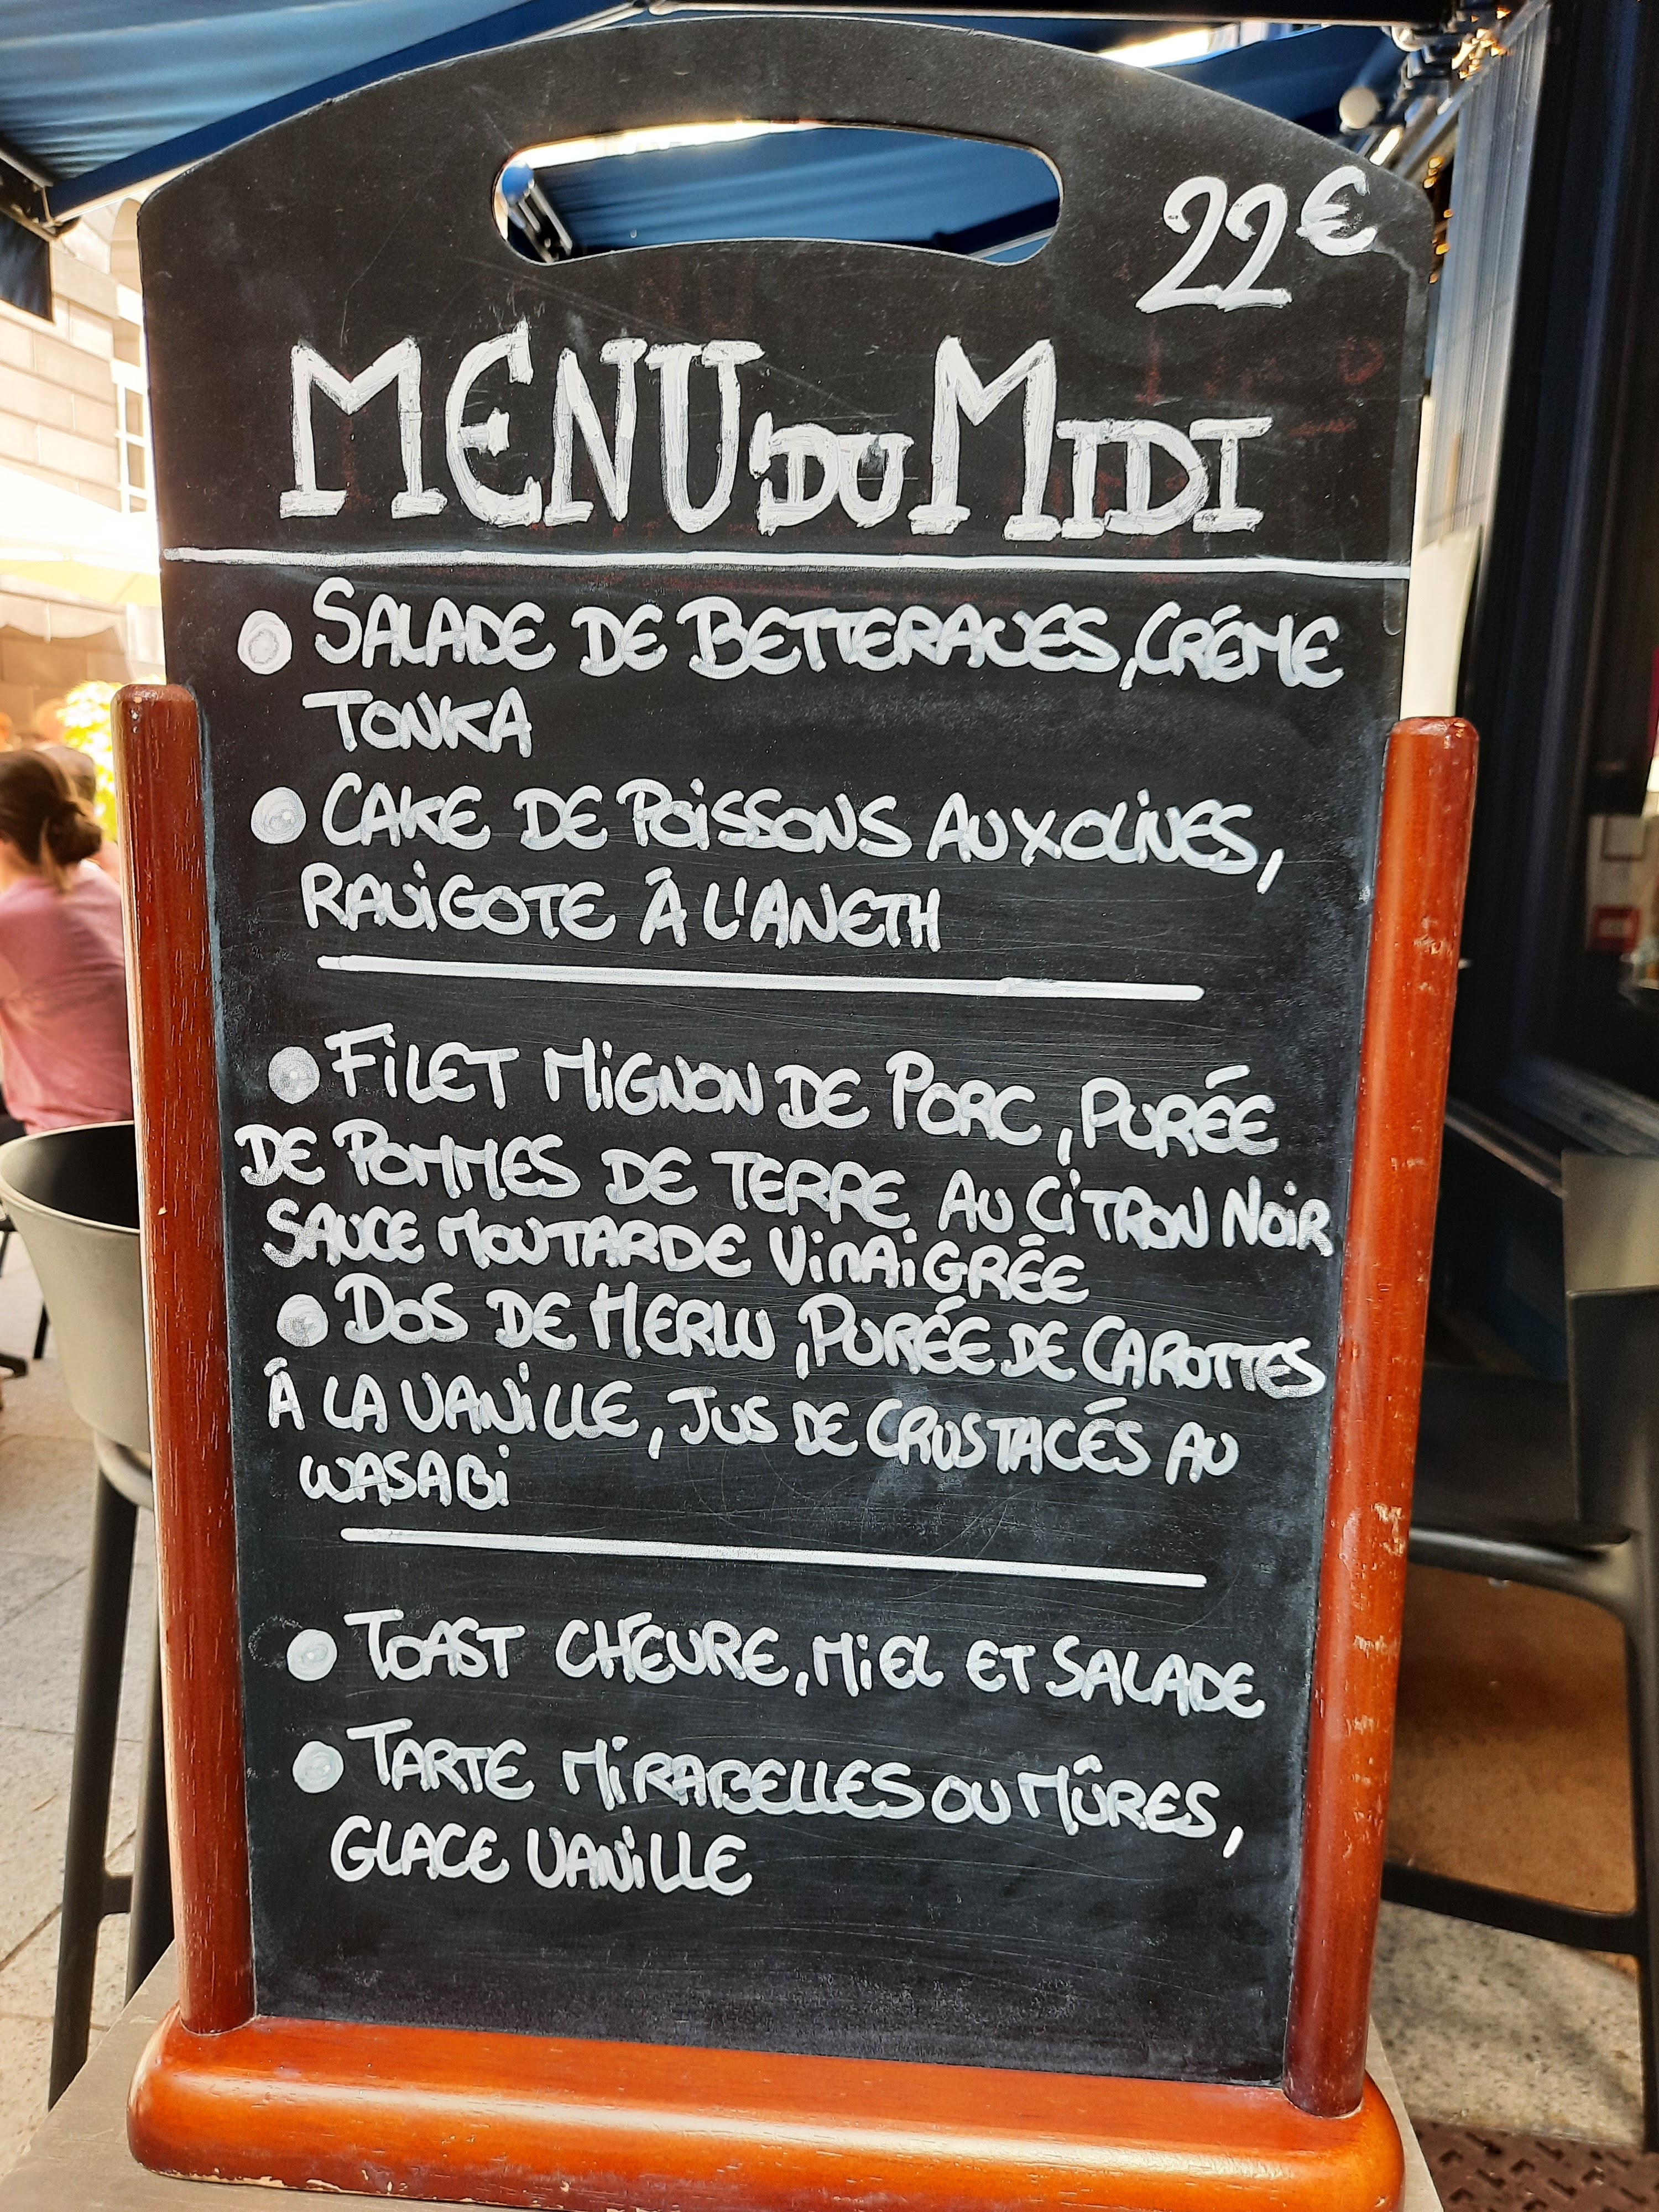 22€
MENU DU MIDI
SALADE DE BETTERAVES, CRÉME
TONKA
CAKE DE POISSONS AUX OLIVES,
RAVIGOTE À L'ANETH
FILET MIGNON DE PORC, PURÉE
DE POMMES DE TERRE AU CITRON NOIR
SAUCE MOUTARDE VINAIGRÉE
DOS DE MERLU, PURÉE DE CAROTTES
À LA VANILLE, JUS DE CRUSTACÉS AU
WASABI
TOAST CHÉVRE, MIEL ET SALADE
TARTE MIRABELLES OU MÛRES,
GLACE VANILLE